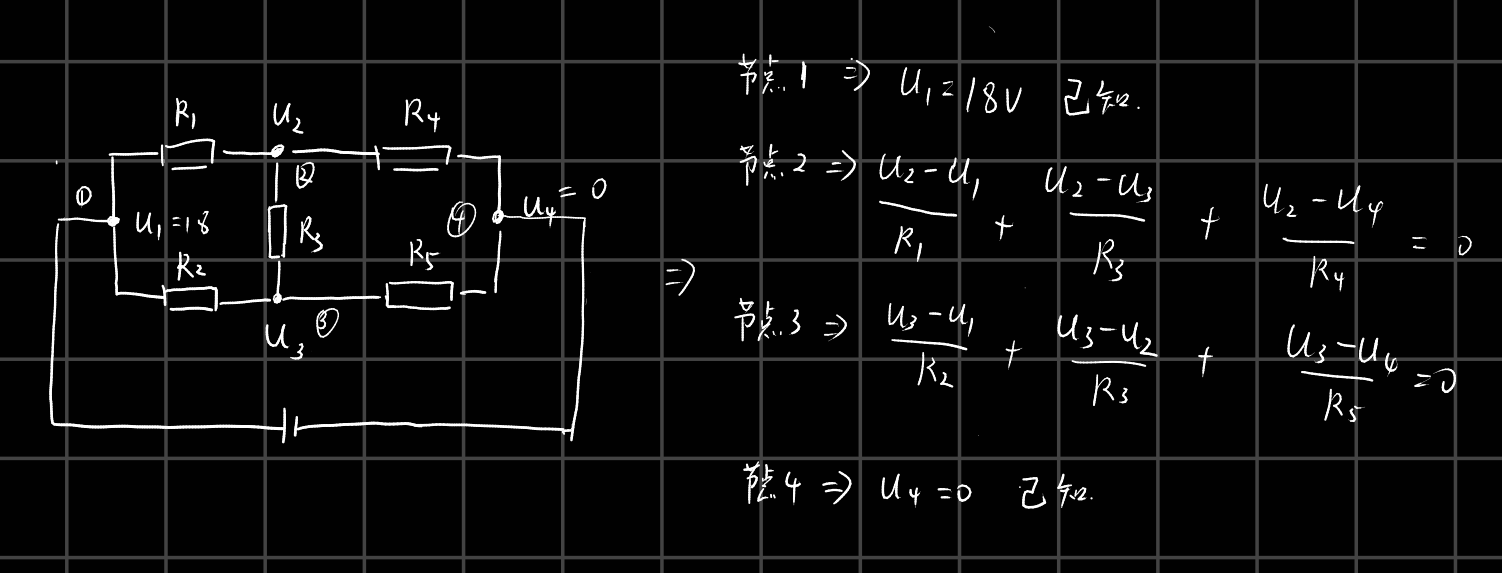 R₁
U₂
R₄
②
①
U₁=18
R₃
④
U₄=0
R₂
R₅
U₃
③
⇒
节点1 ⇒ U₁=18V 已知.
节点2 ⇒ (U₂-U₁)/R₁ + (U₂-U₃)/R₃ + (U₂-U₄)/R₄ = 0
节点3 ⇒ (U₃-U₁)/R₂ + (U₃-U₂)/R₃ + (U₃-U₄)/R₅ =0
节点4 ⇒ U₄=0 已知.